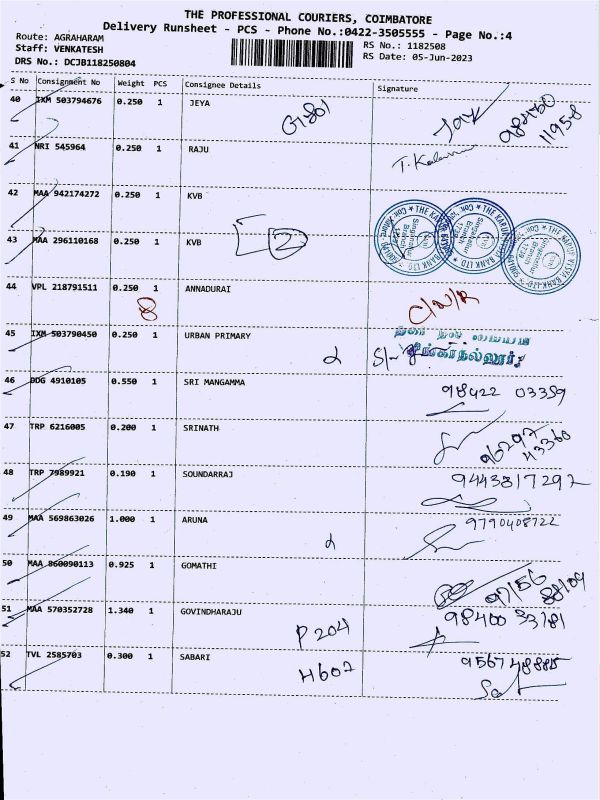 THE PROFESSIONAL COURIERS, COIMBATORE
Delivery Runsheet - PCS - Phone No.:0422-3505555 - Page No.:4
Route: AGRAHARAM
Staff: VENKATESH
DRS No.: DCJB118250804
RS No.: 1182508
RS Date: 05-Jun-2023
S No Consignment No Weight PCS Consignee Details Signature
40 IXM 503794676 0.250 1 JEYA
98470
11958
41 NRI 545964 0.250 1 RAJU
42 MAA 942174272 0.250 1 KVB
43 MAA 296110168 0.250 1 KVB 2
44 VPL 218791511 0.250 1 ANNADURAI
8
C/N/R
45 IXM 503790450 0.250 1 URBAN PRIMARY
46 DDG 4910105 0.550 1 SRI MANGAMMA
98422 03359
47 TRP 6216005 0.200 1 SRINATH
96297
43360
48 TRP 7989921 0.190 1 SOUNDARRAJ 9443817297
49 MAA 569863026 1.000 1 ARUNA 9790408722
50 MAA 860090113 0.925 1 GOMATHI
97156
88109
51 MAA 570352728 1.340 1 GOVINDHARAJU
P204
98400 33181
52 TVL 2585703 0.300 1 SABARI
H607
956748885